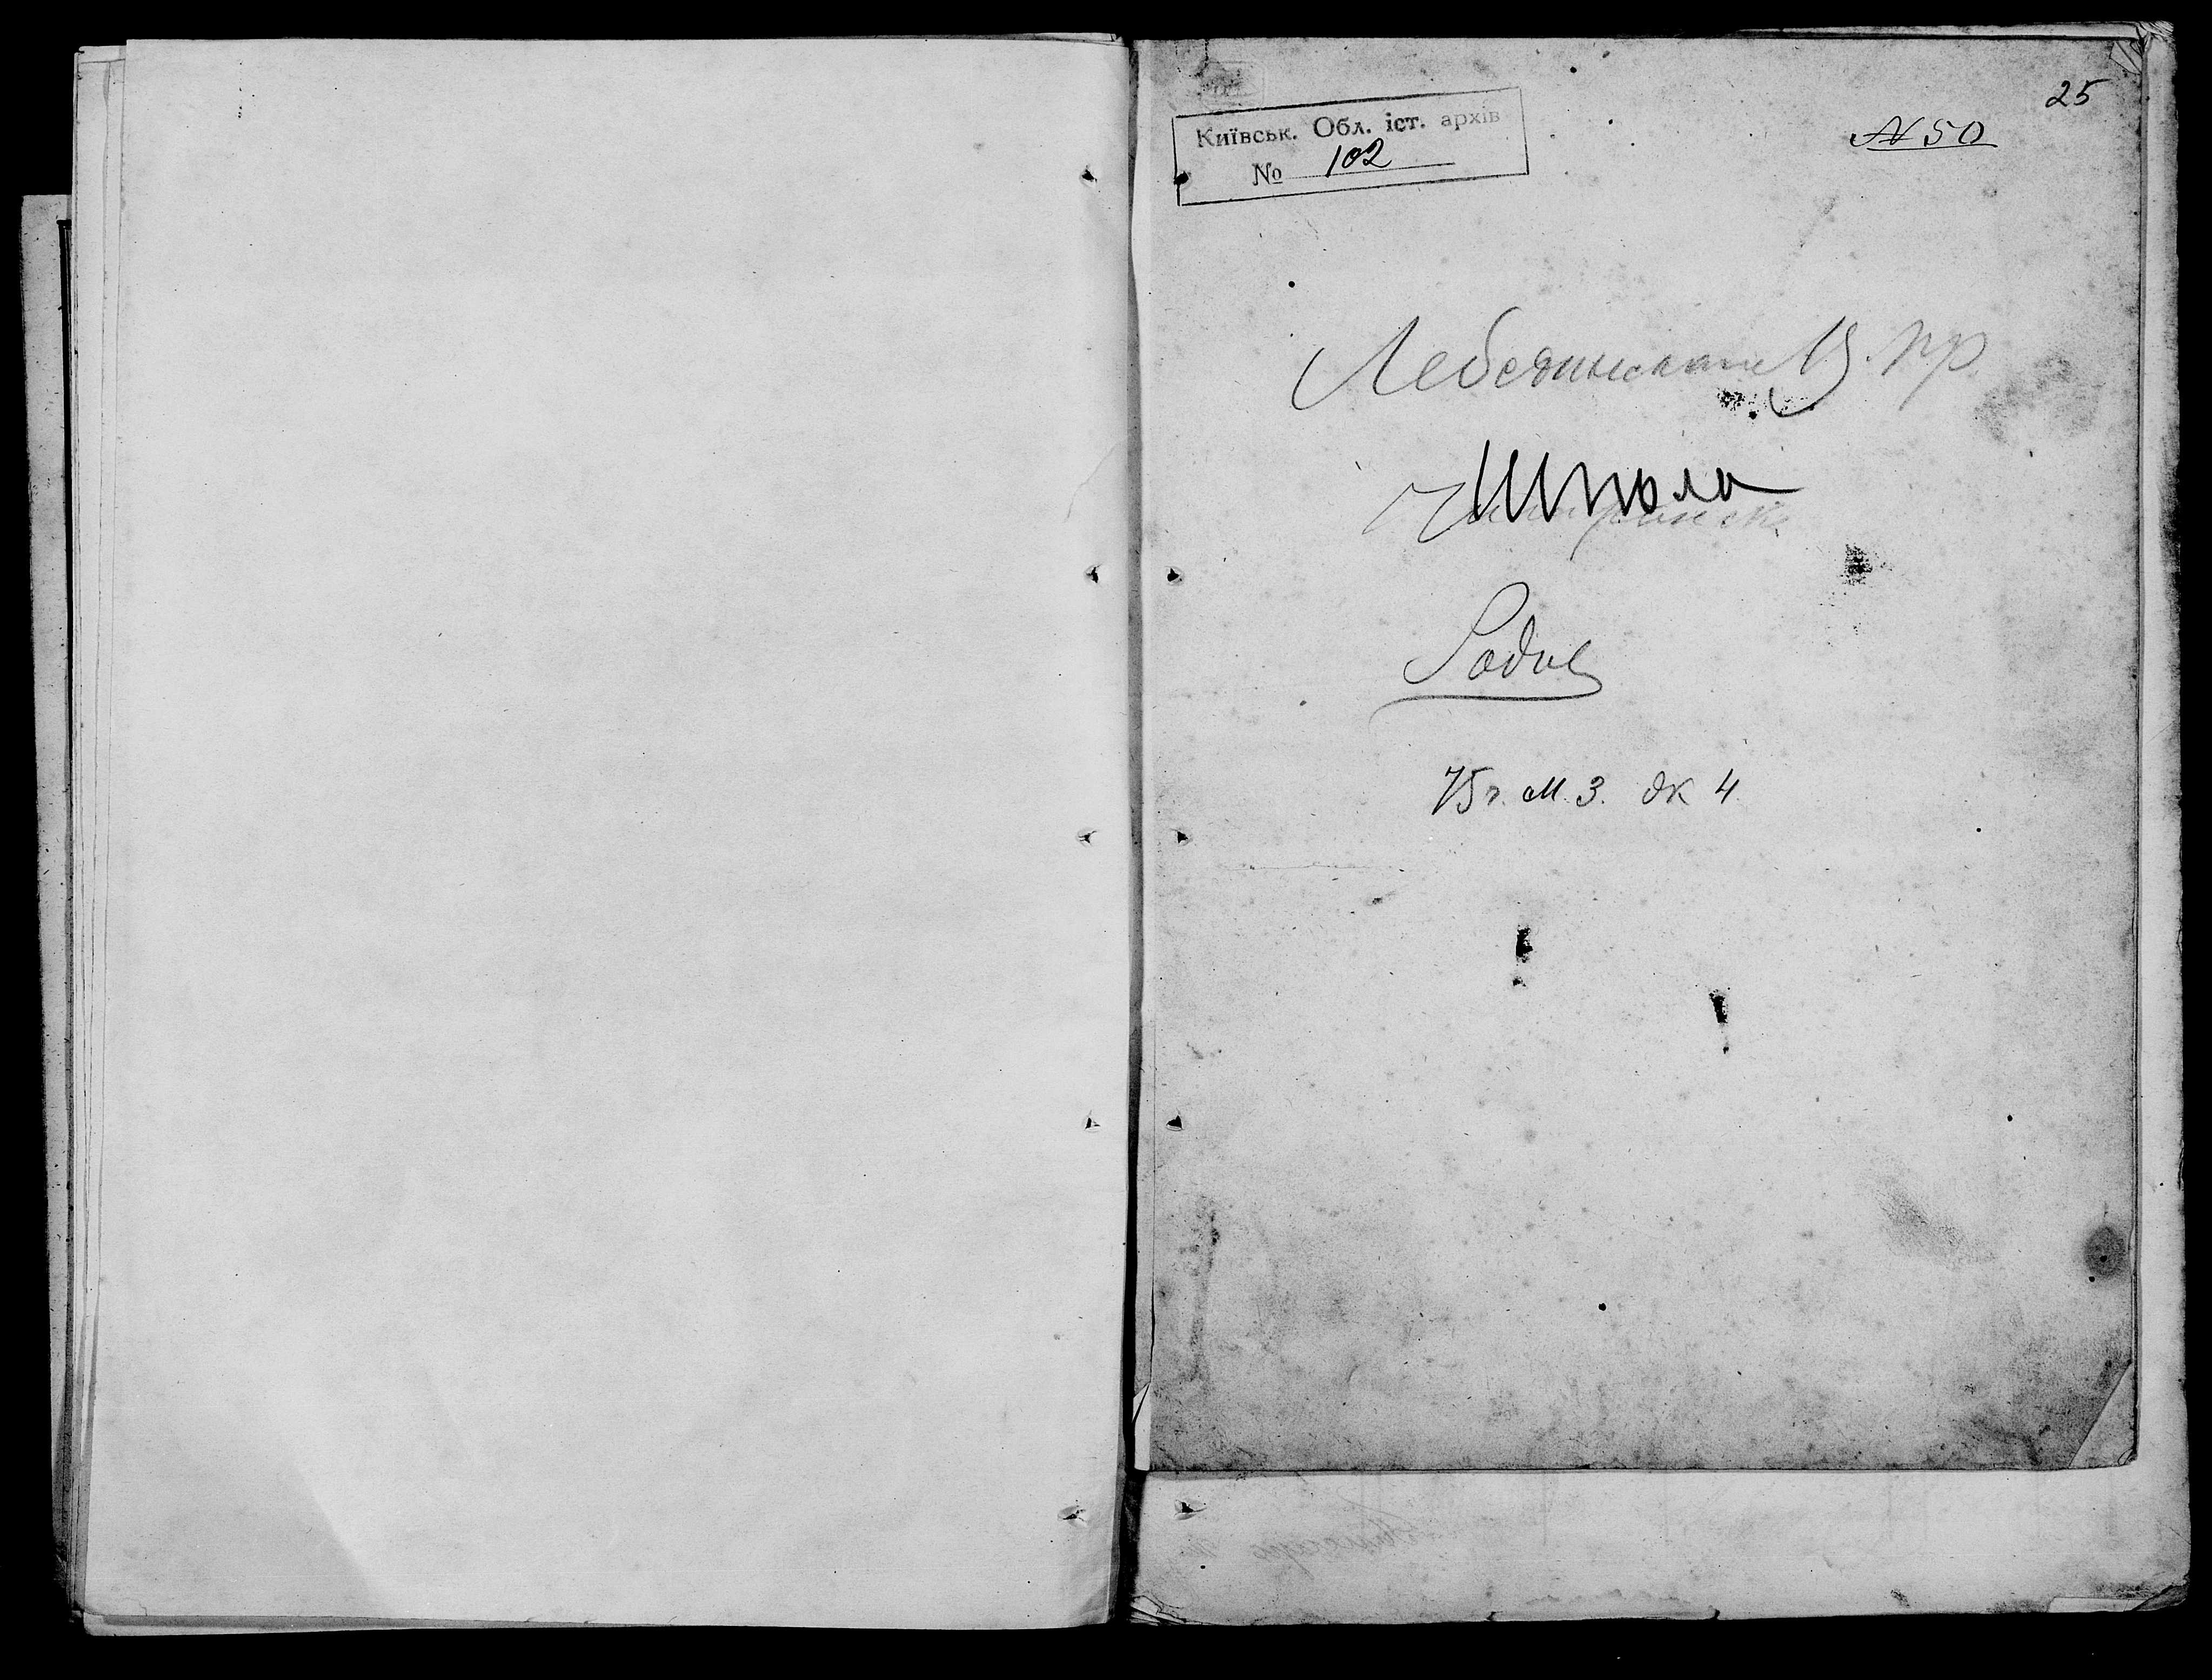 25
№ 50
Київськ. Обл. іст. архів
№ 102
Лебединская В. пр.
Шпола
Родив
75 г. М. 3. дк 4